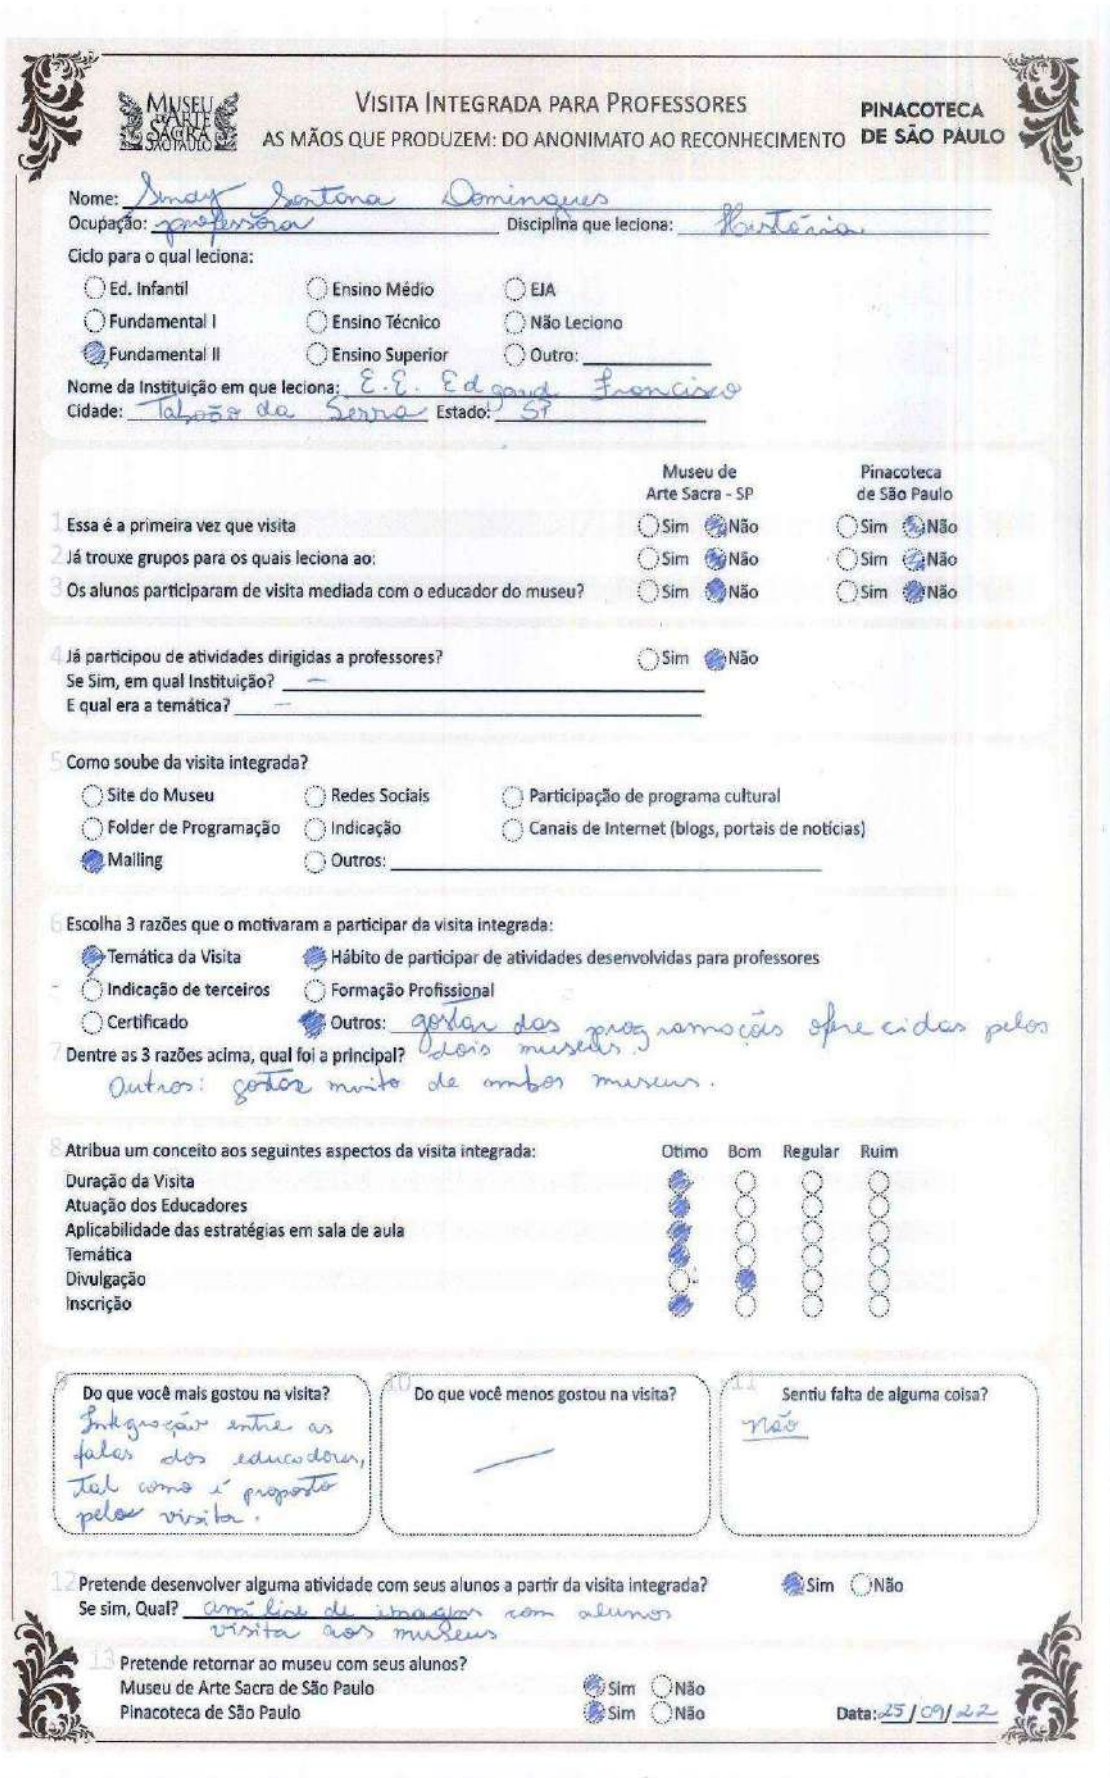 MUSEU
DE ARTE
SACRA
SÃO PAULO
VISITA INTEGRADA PARA PROFESSORES
AS MÃOS QUE PRODUZEM: DO ANONIMATO AO RECONHECIMENTO
PINACOTECA
DE SÃO PAULO
Nome: Sindy Santana Domingues
Ocupação: professora Disciplina que leciona: História
Ciclo para o qual leciona:
Ed. Infantil Ensino Médio EJA
Fundamental I Ensino Técnico Não Leciono
Fundamental II Ensino Superior Outro:
Nome da Instituição em que leciona: E.E. Edgard Francisco
Cidade: Taboão da Serra Estado: SP
Museu de Arte Sacra - SP Pinacoteca de São Paulo
1 Essa é a primeira vez que visita Sim Não Sim Não
2 Já trouxe grupos para os quais leciona ao: Sim Não Sim Não
3 Os alunos participaram de visita mediada com o educador do museu? Sim Não Sim Não
4 Já participou de atividades dirigidas a professores? Sim Não
Se Sim, em qual Instituição? –
E qual era a temática? –
5 Como soube da visita integrada?
Site do Museu Redes Sociais Participação de programa cultural
Folder de Programação Indicação Canais de Internet (blogs, portais de notícias)
Mailing Outros:
6 Escolha 3 razões que o motivaram a participar da visita integrada:
Temática da Visita Hábito de participar de atividades desenvolvidas para professores
Indicação de terceiros Formação Profissional
Certificado Outros: gostar das programações oferecidas pelos
dois museus.
7 Dentre as 3 razões acima, qual foi a principal?
Outros: gostar muito de ambos museus.
8 Atribua um conceito aos seguintes aspectos da visita integrada: Otimo Bom Regular Ruim
Duração da Visita
Atuação dos Educadores
Aplicabilidade das estratégias em sala de aula
Temática
Divulgação
Inscrição
9 Do que você mais gostou na visita?
Integração entre as
falas dos educadores,
tal como é proposto
pela visita.
10 Do que você menos gostou na visita?
—
11 Sentiu falta de alguma coisa?
não
12 Pretende desenvolver alguma atividade com seus alunos a partir da visita integrada? Sim Não
Se sim, Qual? análise de imagens com alunos
visita aos museus
13 Pretende retornar ao museu com seus alunos?
Museu de Arte Sacra de São Paulo Sim Não
Pinacoteca de São Paulo Sim Não
Data: 25/09/22